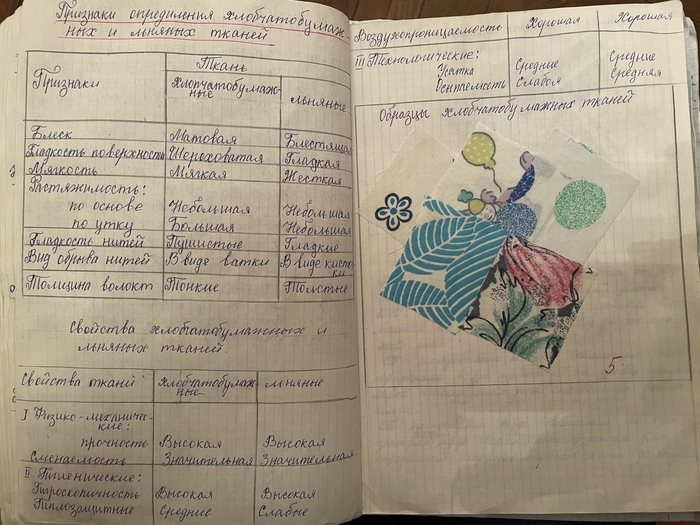 Признаки определения хлобчатобумаж-
ных и льняных тканей
Ткань
Признаки
Хлопчатобумаж-
ные
льняные
Блеск Матовая Блестящая
Гладкость поверхности Шероховатая Гладкая
Мягкость Мягкая Жесткая
Растяжимость:
по основе Небольшая Небольшая
по утку Большая Небольшая
Гладкость нитей Пушистые Гладкие
Вид обрыва нитей В виде ватки В виде кисточ
ки
Толщина волокт Тонкие Толстые
Свойства хлобчатобумажных и
льняных тканей.
Свойства тканй хлобчатобумаж
ные
льняные
I Физико-механичес-
кие:
прочность Высокая Высокая
Сменаемость Значительная Значительная
II Гигиенические:
Гигроскопичность Высокая Высокая
Типлозащитные Средние Слабые
Воздухопроницаемость Хорошая Хорошая
III Технологические:
Усатка Средние Средние
Осыпаемость Слабая Средняя
Образцы хлобчатобумажных тканей
5